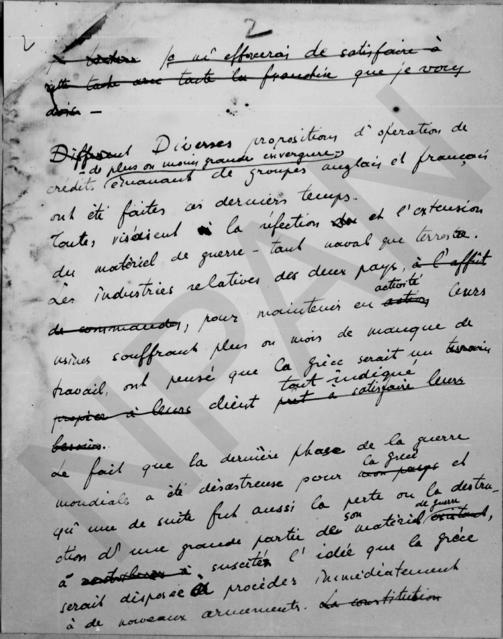 2
je m'efforcerai de satisfaire à
cette tache avec toute la franchise que je vous
dois. —
Different Diverses propositions d'opération de
- de plus ou moins grande envergure -
crédit, émanant de groupes anglais et français
ont été faites ces derniers temps.
Toutes visaient à la réfection et l'extension
du matériel de guerre - tant naval que terrestre.
Les industries relatives des deux pays, à l'affût
activité
de commandes, pour maintenir en action leurs
usines souffrant plus ou mois de manque de
travail, ont pensé que la Grèce serait un terrain
tout indiqué
propice à leurs client pret a satisfaire leurs
besoins.
Le fait que la dernière phase de la guerre
la Grèce
mondiale a été désastreuse pour mon pays et
qu'une de suite fut aussi la perte ou la destru-
son de guerre
ction d'une grande partie de matériel existant,
a suscité l'idée que la Grèce
serait disposée à procéder immédiatement
à de nouveaux armements. La constitution
NPAN